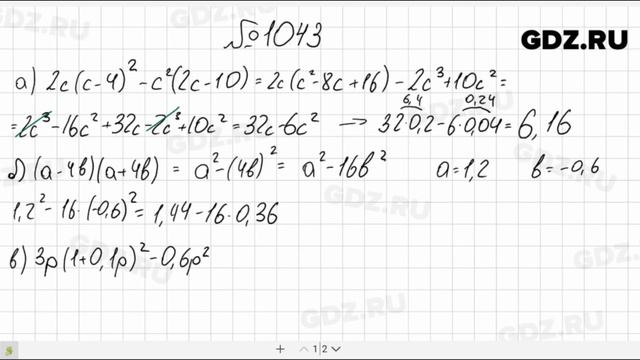 №1043
GDZ.RU
а) 2c(c-4)² - c²(2c-10) = 2c(c²-8c+16) - 2c³+10c² =
6,4 0,24
= 2c³-16c²+32c-2c³+10c² = 32c-6c² → 32·0,2-6·0,04 = 6,16
б) (a-4b)(a+4b) = a²-(4b)² = a²-16b² a=1,2 b=-0,6
1,2²-16·(-0,6)² = 1,44-16·0,36
в) 3p(1+0,1p)²-0,6p²
GDZ.RU
GDZ.RU
GDZ.RU
+ 1|2